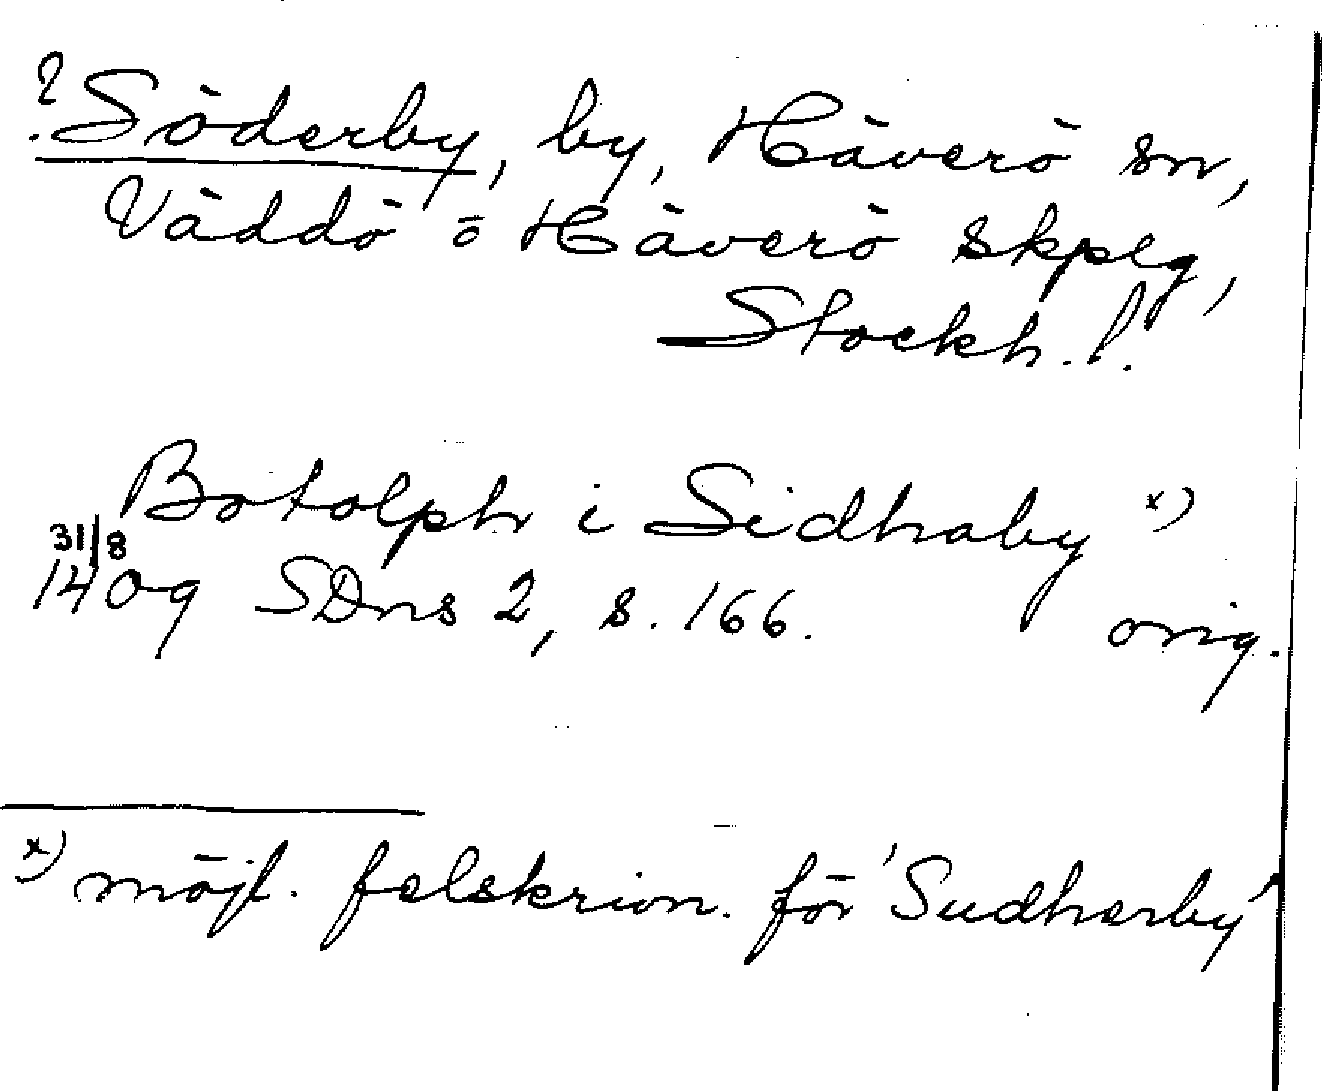 ? Söderby, by, Häverö sn,
Väddö o Häverö skplg,
Stockh. l.
Botolph i Sidhaby x)
31/8
1409 SDns 2, s. 166. orig.
x) möjl. felskrivn. för 'Sudherby'